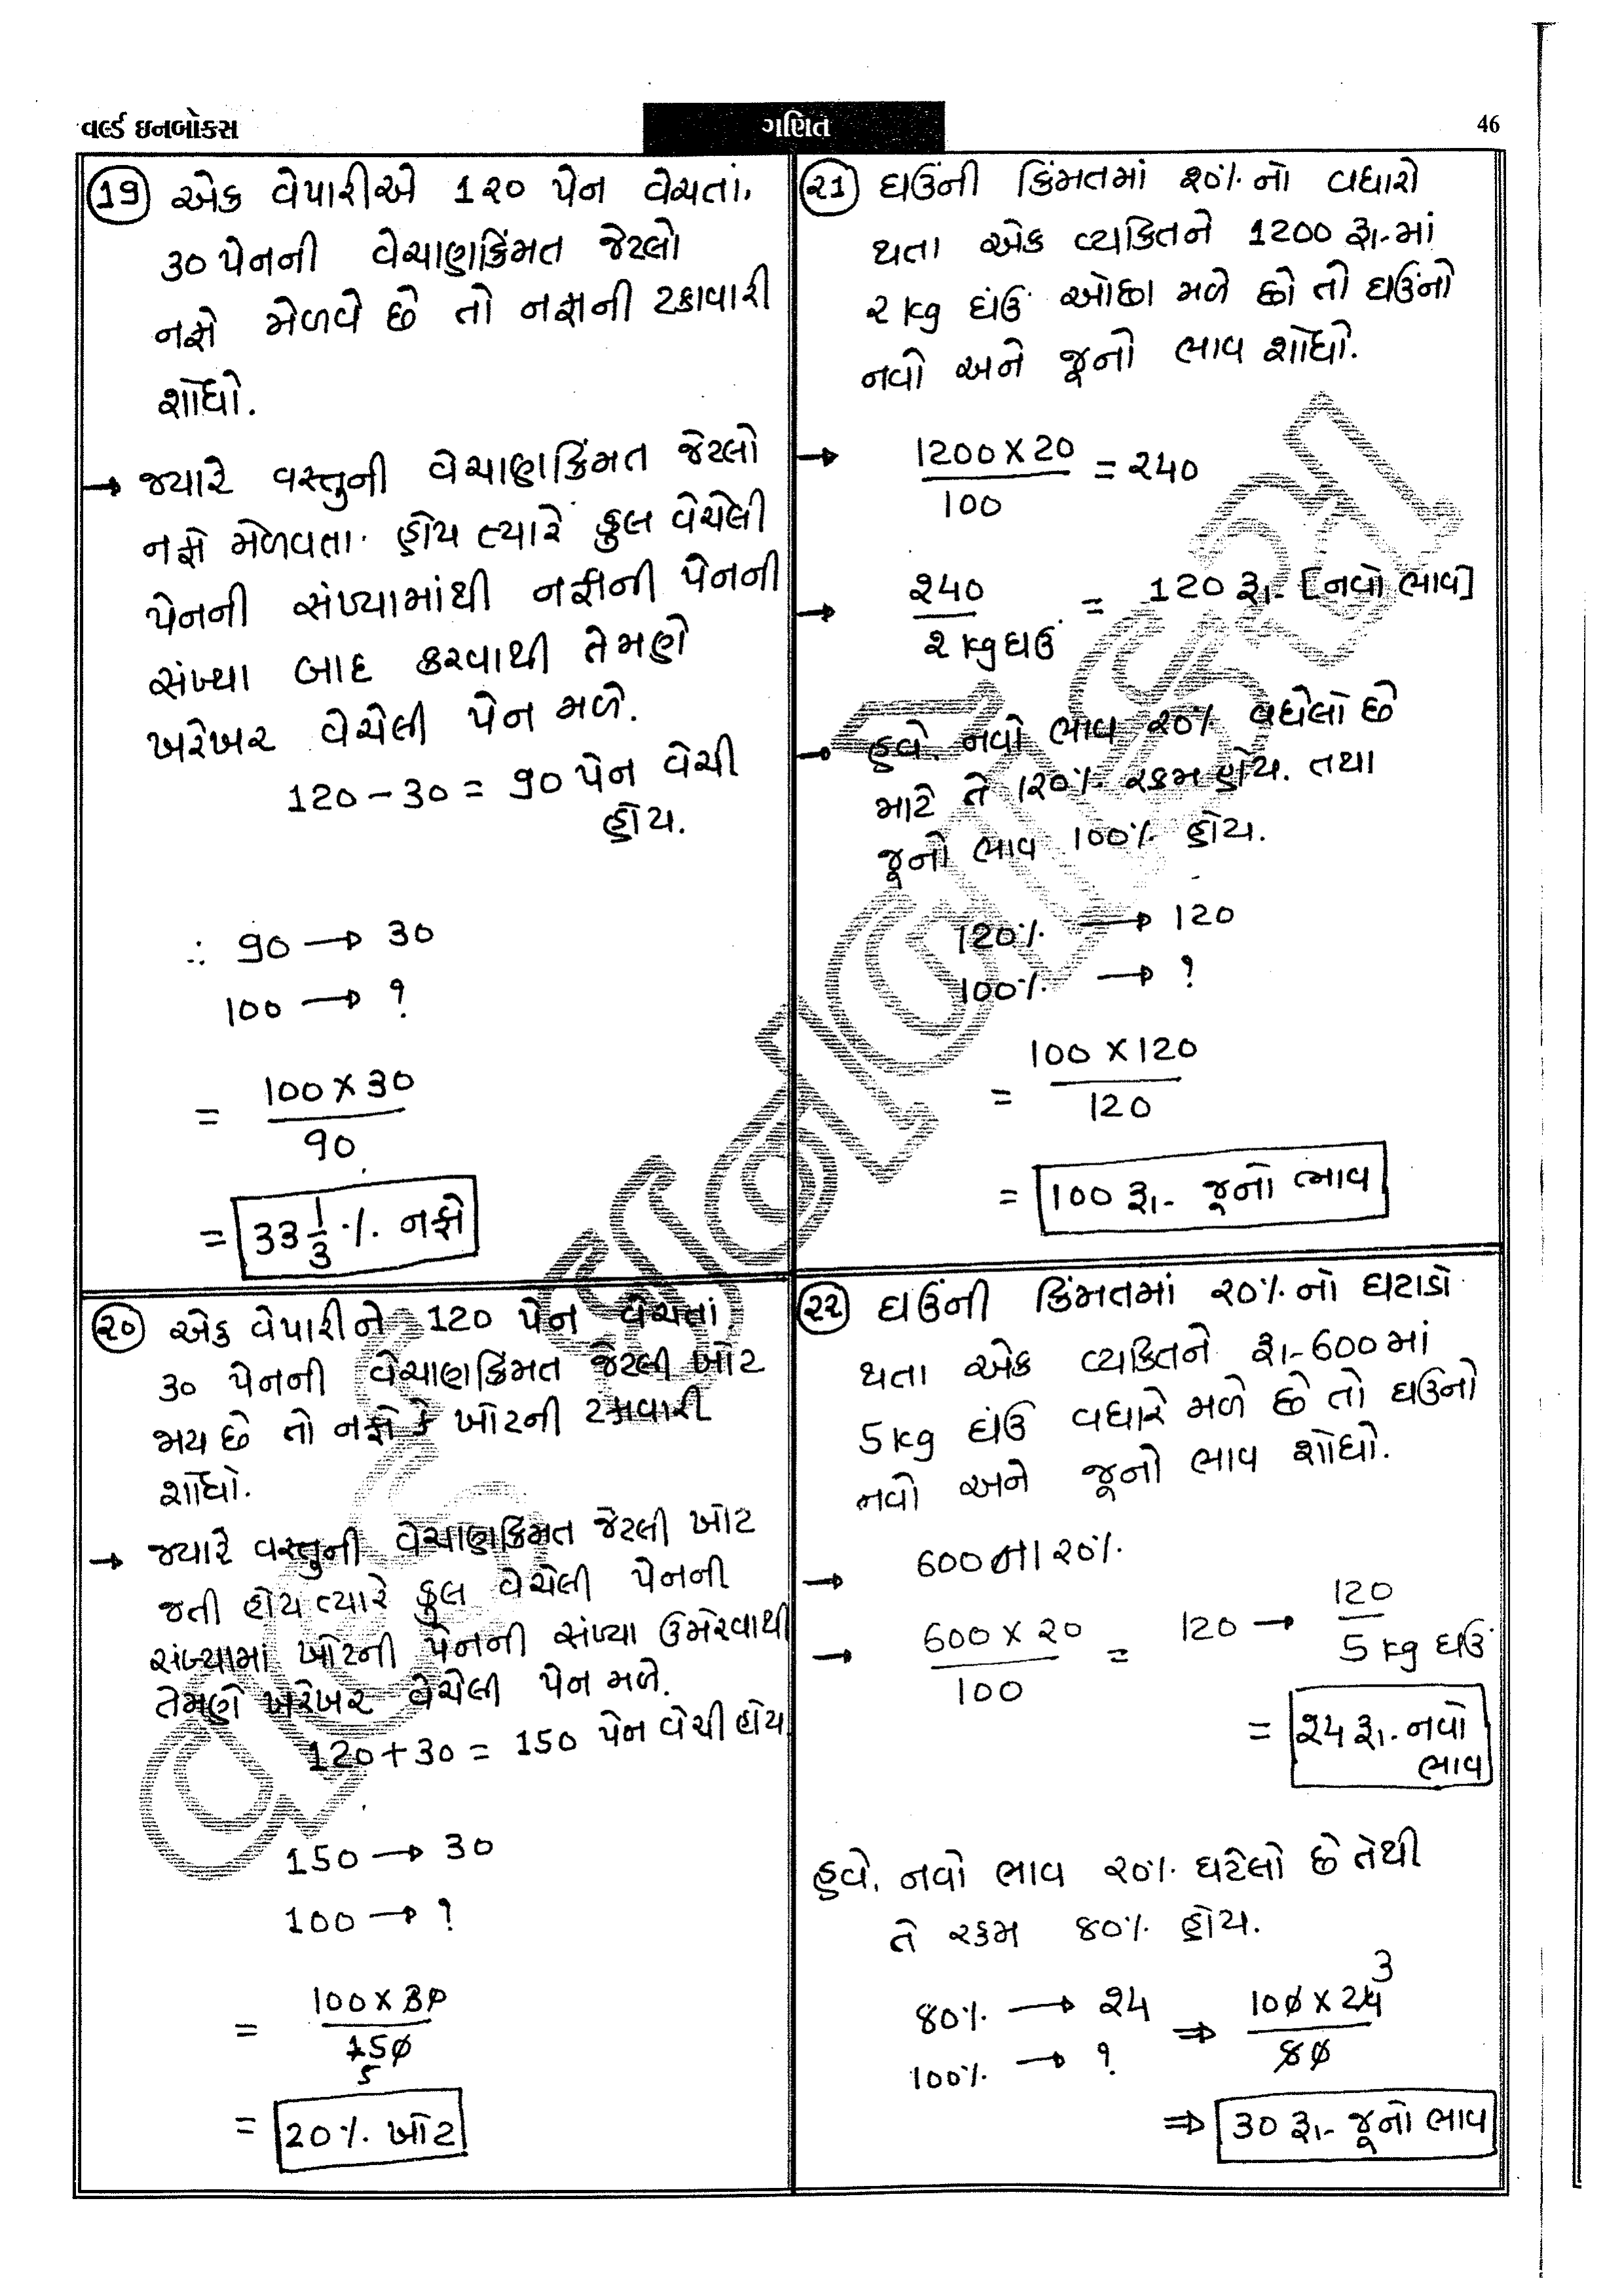 વર્લ્ડ ઇનબોક્સ
ગણિત
46
19 એક વેપારીએ 1૨૦ પેન વેચતાં,
૩૦ પેનની વેચાણકિંમત જેટલો
નફો મેળવે છે તો નફાની ટકાવારી
શોધો.
→ જ્યારે વસ્તુની વેચાણકિંમત જેટલો
નફો મેળવતા હોય ત્યારે કુલ વેચેલી
પેનની સંખ્યામાંથી નફાની પેનની
સંખ્યા બાદ કરવાથી તેમણે
ખરેખર વેચેલી પેન મળે.
120 - 30 = 90 પેન વેચી
હોય.
∴ 90 → 30
100 → ?
= 100 × 30
90
= 33 1/3 % નફો
૨૦ એક વેપારીને 120 પેન વેચતાં,
૩૦ પેનની વેચાણકિંમત જેટલી ખોટ
જાય છે તો નફો કે ખોટની ટકાવારી
શોધો.
→ જ્યારે વસ્તુની વેચાણકિંમત જેટલી ખોટ
જતી હોય ત્યારે કુલ વેચેલી પેનની
સંખ્યામાં ખોટની પેનની સંખ્યા ઉમેરવાથી
તેમણે ખરેખર વેચેલી પેન મળે.
120 + 30 = 150 પેન વેચી હોય.
150 → 30
100 → ?
= 100 × 30
150
5
= 20% ખોટ
૨1 ઘઉંની કિંમતમાં ૨૦% નો વધારો
થતા એક વ્યકિતને 1200 રૂ.માં
૨ kg ઘંઉ ઓછા મળે છો તો ઘઉંનો
નવો અને જૂનો ભાવ શોધો.
→ 1200 × 20 = ૨40
100
→ ૨40 = 120 રૂ. [નવો ભાવ]
૨ kg ઘઉં
→ હવે, નવો ભાવ ૨૦% વધેલો છે
માટે તે 1૨૦% રકમ હોય. તથા
જૂનો ભાવ 100% હોય.
120% → 120
100% → ?
= 100 × 120
120
= 100 રૂ. જૂનો ભાવ
૨૨ ઘઉંની કિંમતમાં ૨૦% નો ઘટાડો
થતા એક વ્યકિતને રૂ.600માં
5 kg ઘંઉ વધારે મળે છે તો ઘઉંનો
નવો અને જૂનો ભાવ શોધો.
→ 600ના ૨૦%
→ 600 × ૨૦ = 120 → 120
100 5 kg ઘઉં
= ૨4 રૂ. નવો
ભાવ
હવે, નવો ભાવ ૨૦% ઘટેલો છે તેથી
તે રકમ 80% હોય.
80% → ૨4 ⇒ 100 × 24 3
100% → ? 80
⇒ 30 રૂ. જૂનો ભાવ